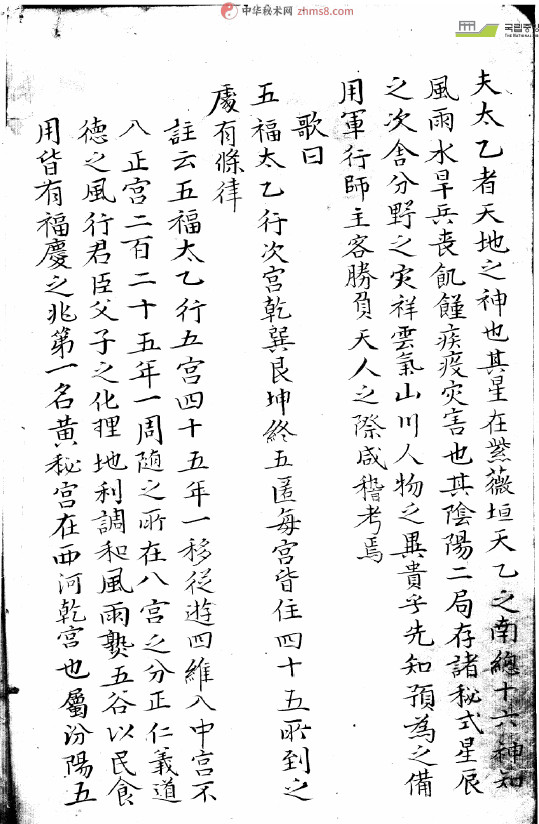 中华秘术网 zhms8.com
国立中央
THE NATIONAL
夫太乙者天地之神也其星在紫薇垣天乙之南總十六神知
風雨水旱兵喪飢饉疾疫灾害也其陰陽二局存諸秘式星辰
之次舍分野之灾祥雲氣山川人物之異貴乎先知預為之備
用軍行師主客勝負天人之際咸稽考焉
歌曰
五福太乙行次宮乾巽艮坤終五匿每宮皆住四十五所到之
處有條律
註云五福太乙行五宮四十五年一移從遊四維八中宮不
八正宮二百二十五年一周随之所在八宮之分正仁義道
德之風行君臣父子之化理地利調和風雨熟五谷以民食
用皆有福慶之兆第一名黄秘宮在西河乾宮也屬汾陽五